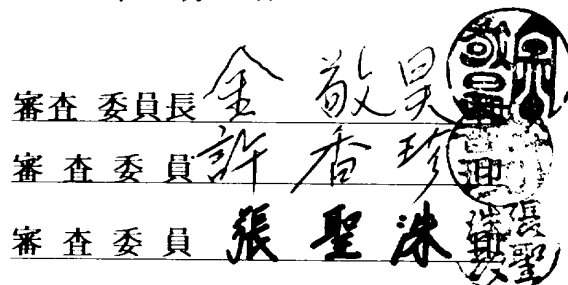 審査 委員長 金 敬 昊
審 査 委 員 許 香 珍
審 査 委 員 張 聖 洙